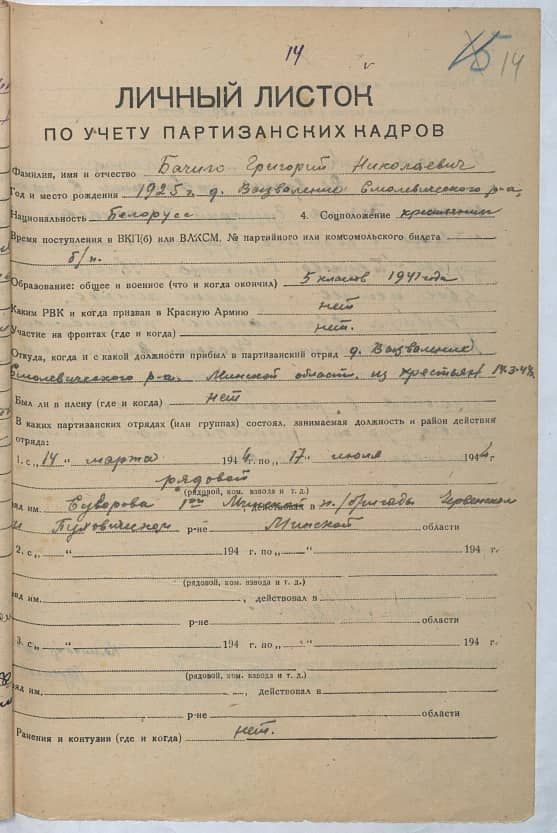 14
15 14
ЛИЧНЫЙ ЛИСТОК
ПО УЧЕТУ ПАРТИЗАНСКИХ КАДРОВ
Фамилия, имя и отчество Бачило Григорий Николаевич
Год и место рождения 1925 г. д. Смолевичского р-а,
Национальность Белорусс 4. Соцположение крестьянин
Время поступления в ВКП(б) или ВЛКСМ, № партийного или комсомольского билета
б/п.
Образование: общее и военное (что и когда окончил) 5 классов 1941 года
Каким РВК и когда призван в Красную Армию нет
Участие на фронтах (где и когда) нет.
Откуда, когда и с какой должности прибыл в партизанский отряд д.
Смолевичского р-а. Минской области, из крестьян 14.3.44г.
Был ли в плену (где и когда) нет
В каких партизанских отрядах (или группах) состоял, занимаемая должность и район действия
отряда:
1. с „14" марта 1944 г. по „17" июля 1944
рядовой
(рядовой, ком. взвода и т. д.)
яд им. Суворова 1ой Минской п./бригады Червенском
и Пуховическом р-не Минской области
2. с „ " 194 г. по „ " 194 г.
(рядовой, ком. взвода и т. д.)
яд им. , действовал в
р-не области
3. с „ " 194 г. по „ " 194 г.
(рядовой, ком. взвода и т. д.)
яд им. , действовал в
р-не области
Ранения и контузии (где и когда) нет.